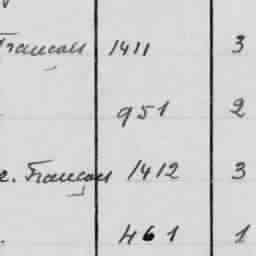 Français 1411 3
951 2
e. Français 1412 3
461 1